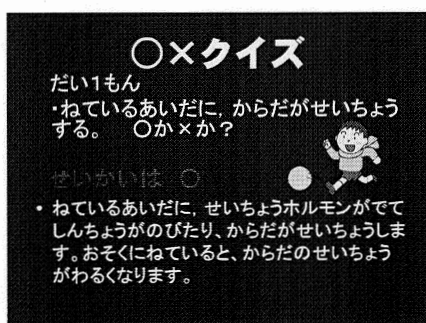 ○×クイズ
だい1もん
・ねているあいだに，からだがせいちょう
する。　○か×か？
せいかいは ○
・ ねているあいだに，せいちょうホルモンがでて
しんちょうがのびたり、からだがせいちょうしま
す。おそくにねていると、からだのせいちょう
がわるくなります。